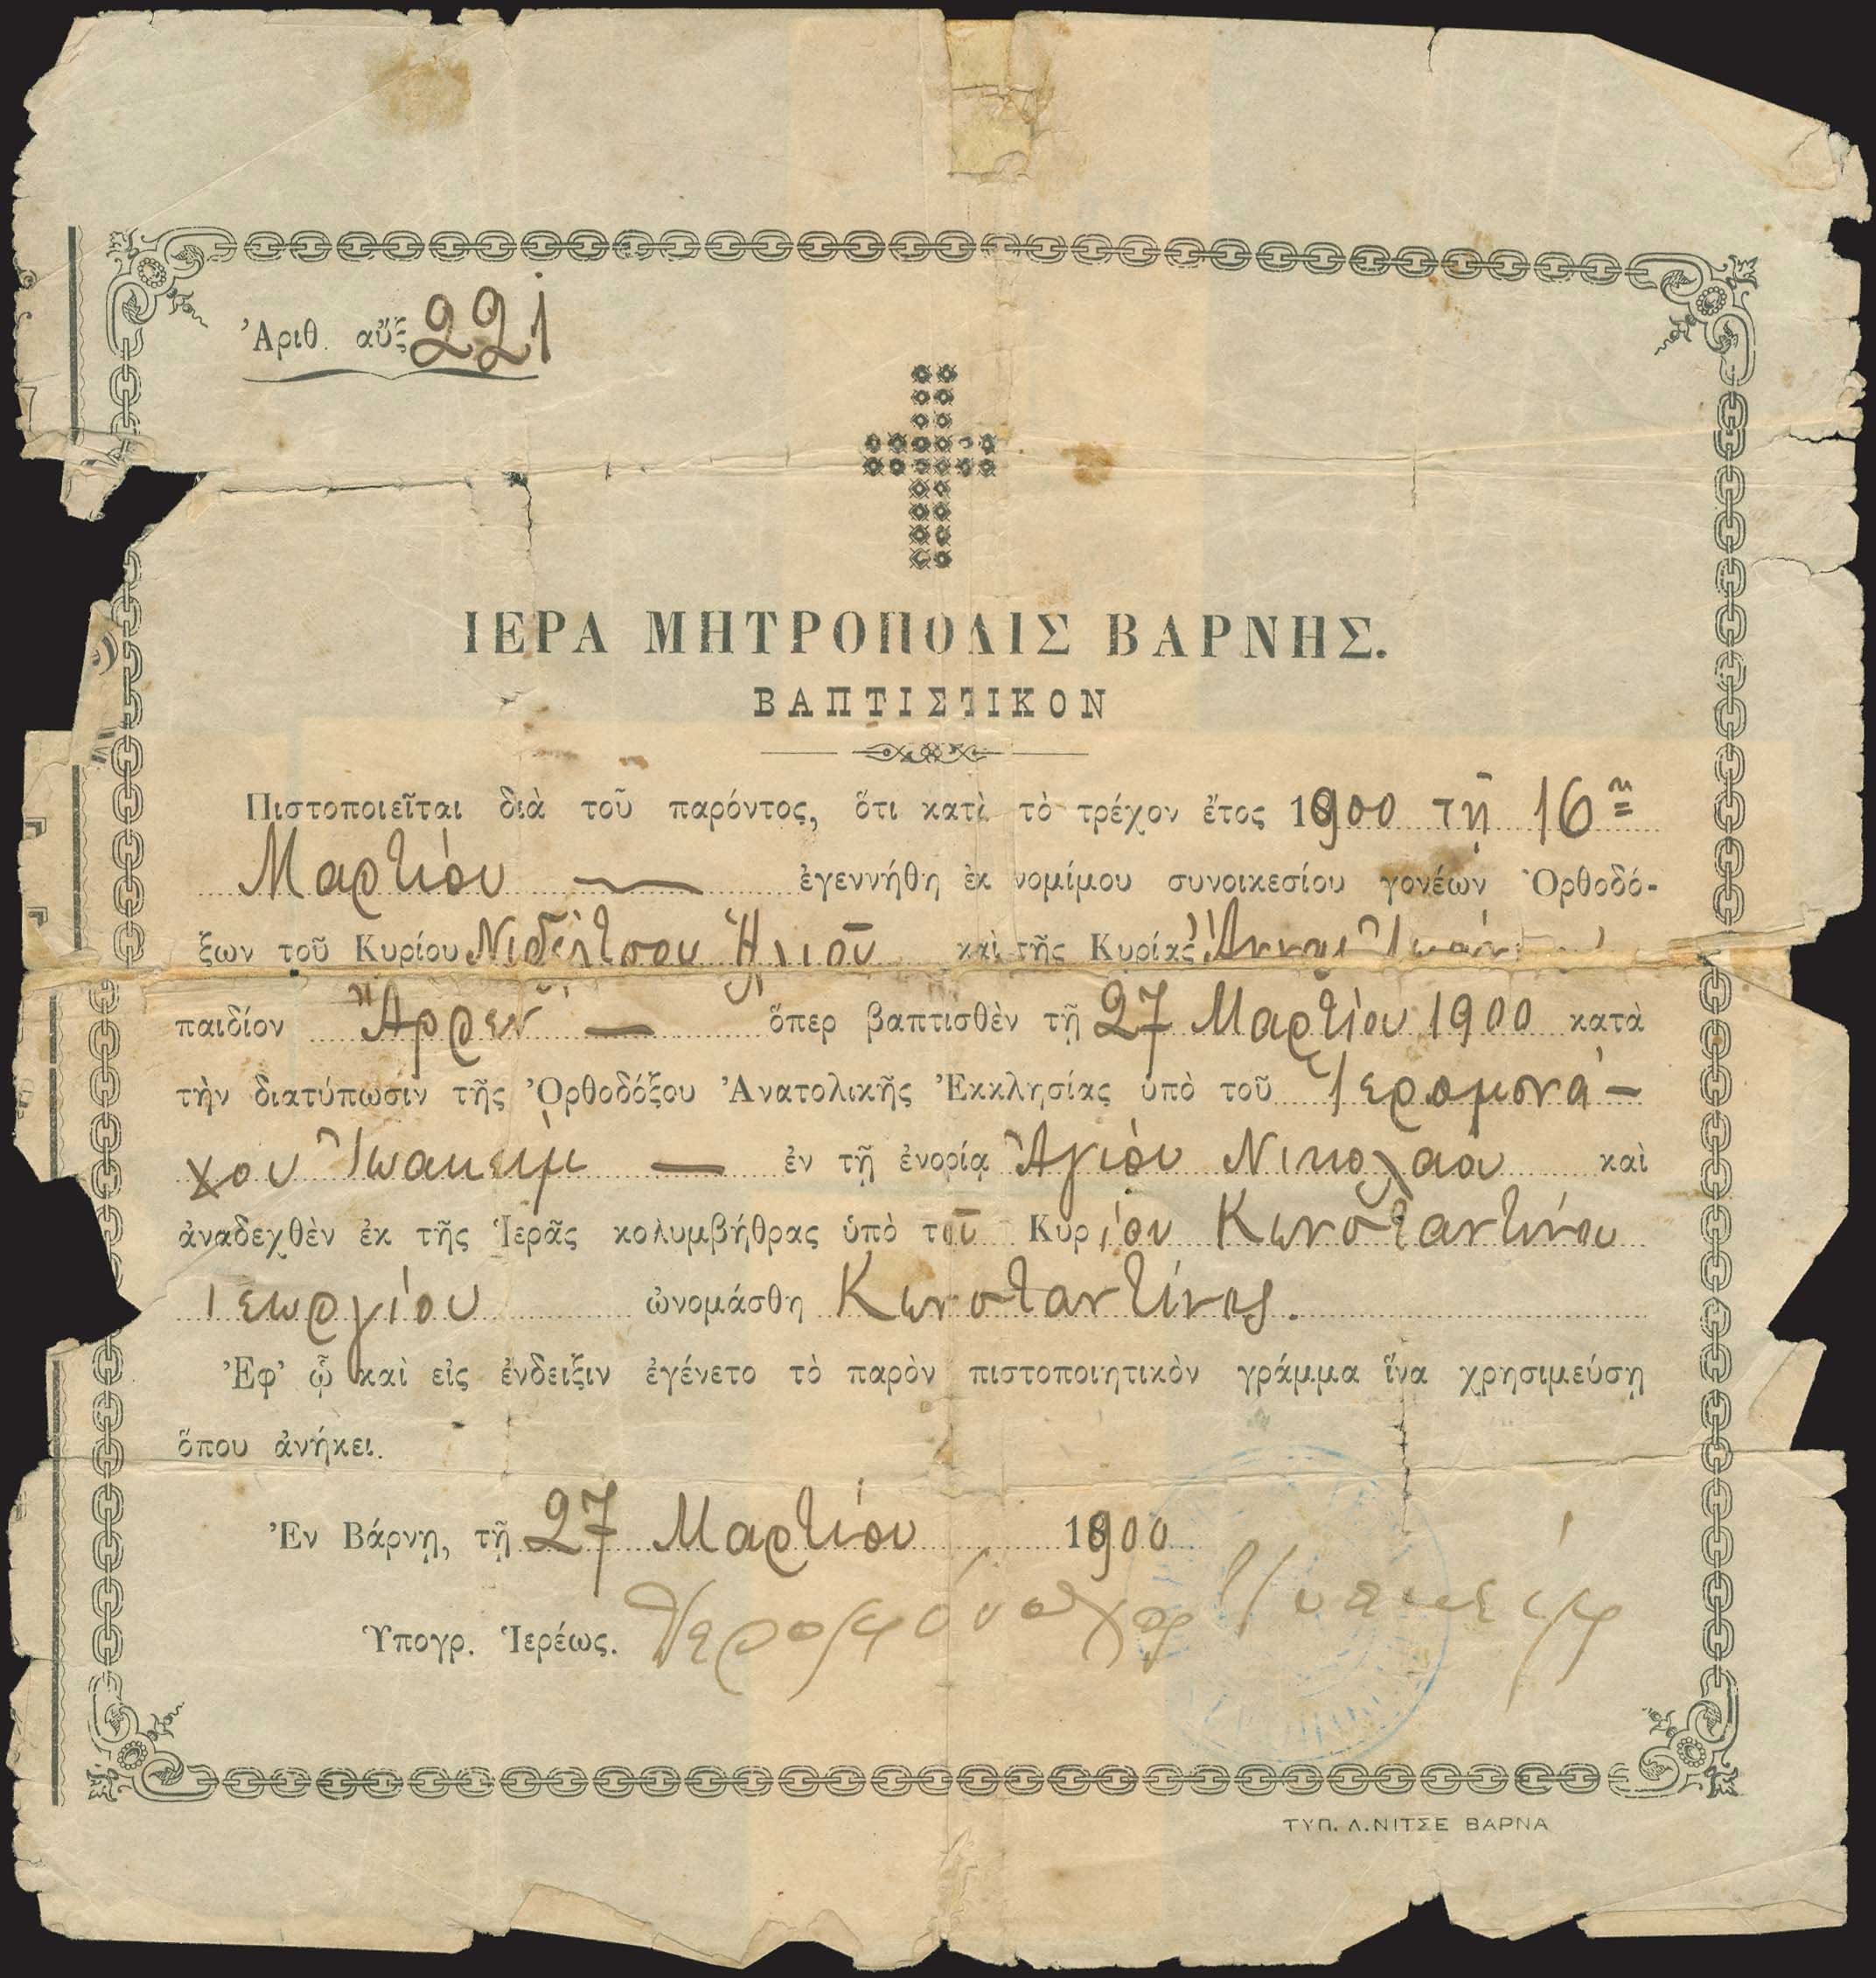 Ἀριθ. αὔξ 221
ΙΕΡΑ ΜΗΤΡΟΠΟΛΙΣ ΒΑΡΝΗΣ.
ΒΑΠΤΙΣΤΙΚΟΝ
Πιστοποιεῖται διὰ τοῦ παρόντος, ὅτι κατὰ τὸ τρέχον ἔτος 1900 τῇ 16ῃ
Μαρτίου — ἐγεννήθη ἐκ νομίμου συνοικεσίου γονέων Ὀρθοδό-
ξων τοῦ Κυρίου Νιδέλτσου Ἠλιοῦ καὶ τῆς Κυρίας Ἄννας
παιδίον Ἄρρεν — ὅπερ βαπτισθὲν τῇ 27 Μαρτίου 1900 κατὰ
τὴν διατύπωσιν τῆς Ὀρθοδόξου Ἀνατολικῆς Ἐκκλησίας ὑπὸ τοῦ Ἱερομονά-
χου Ἰωακεὶμ — ἐν τῇ ἐνορίᾳ Ἁγίου Νικολάου καὶ
ἀναδεχθὲν ἐκ τῆς Ἱερᾶς κολυμβήθρας ὑπὸ τοῦ Κυρίου Κωνσταντίνου
Γεωργίου ὠνομάσθη Κωνσταντῖνος.
Ἐφ' ᾧ καὶ εἰς ἔνδειξιν ἐγένετο τὸ παρὸν πιστοποιητικὸν γράμμα ἵνα χρησιμεύσῃ
ὅπου ἀνήκει.
Ἐν Βάρνῃ, τῇ 27 Μαρτίου 1900
Ὑπογρ. Ἱερέως. Ἱερομόναχος Ἰωακείμ
ΤΥΠ. Λ. ΝΙΤΣΕ ΒΑΡΝΑ